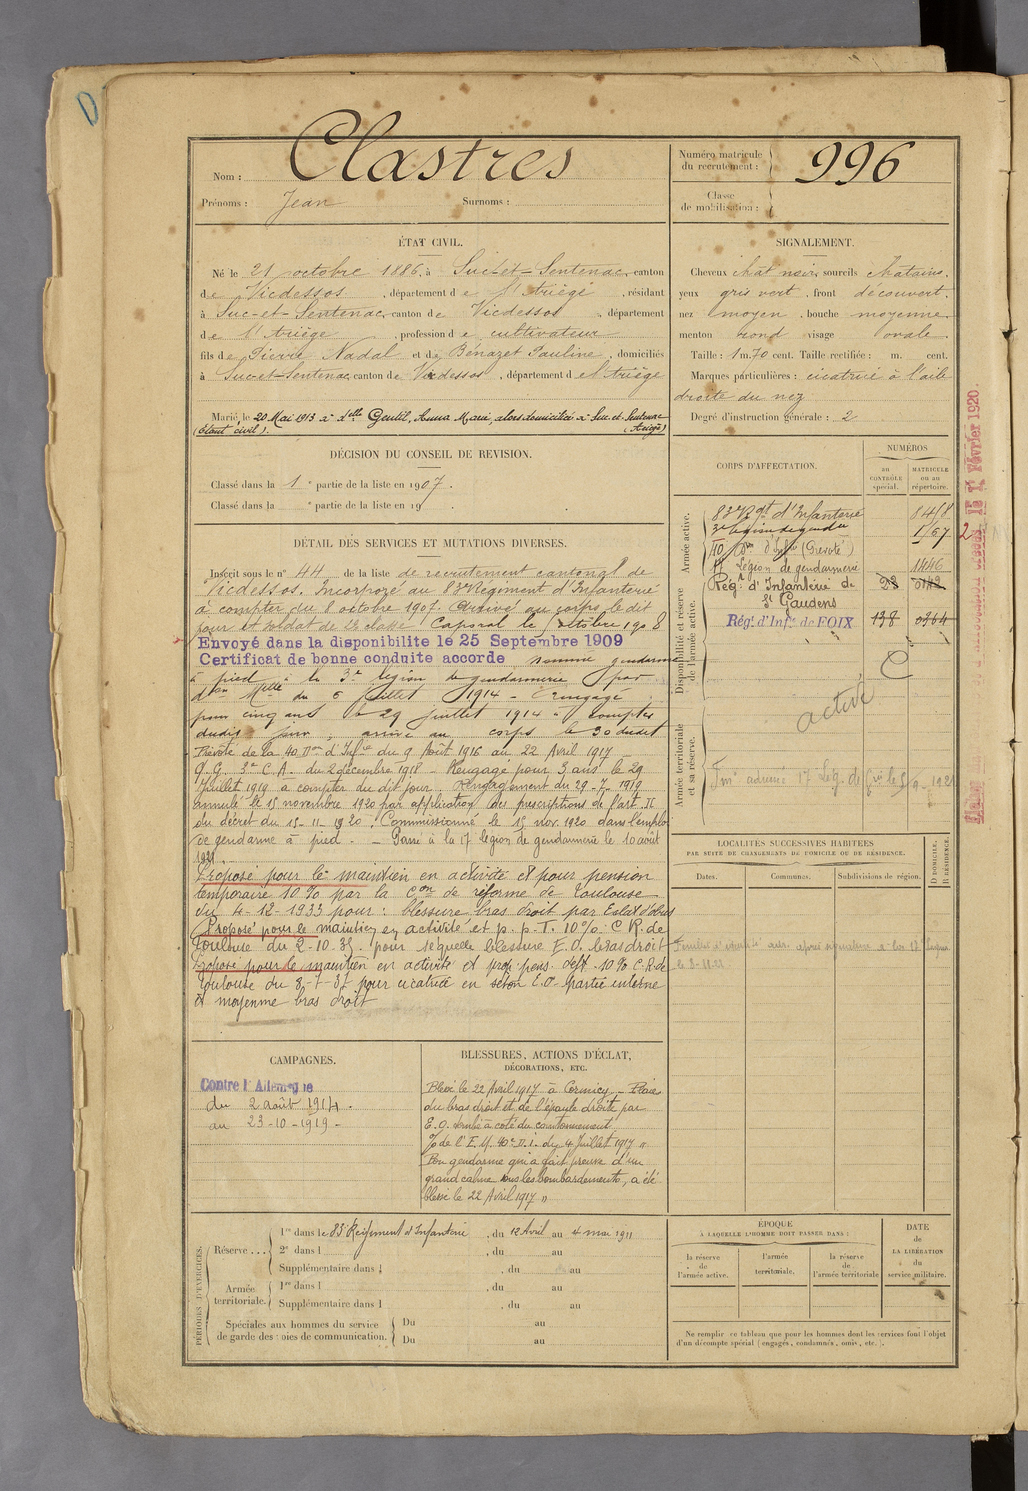 D
Nom : Clastres
Prénoms : Jean Surnoms :
Numéro matricule
du recrutement : 996
Classe
de mobilisation :
ÉTAT CIVIL.
Né le 21 octobre 1886, à Suc-et-Sentenac, canton
de Vicdessos, département de l'Ariège, résidant
à Suc-et-Sentenac, canton de Vicdessos, département
de l'Ariège, profession de cultivateur
fils de Pierre Nadal et de Bénazet Pauline, domiciliés
à Suc-et-Sentenac, canton de Vicdessos, département de l'Ariège
Marié, le 20 Mai 1913 à delle Gentil, Anna Marie, alors domiciliée à Suc et Sentenac
(Etant civil). (Ariège)
SIGNALEMENT.
Cheveux chat noir, sourcils chatains,
yeux gris vert, front découvert,
nez moyen, bouche moyenne
menton rond visage ovale
Taille : 1 m. 70 cent. Taille rectifiée : m. cent.
Marques particulières : cicatrice à l'aile
droite du nez
Degré d'instruction générale : 2
DÉCISION DU CONSEIL DE REVISION.
Classé dans la 1e partie de la liste en 1907.
Classé dans la e partie de la liste en 19 .
DÉTAIL DES SERVICES ET MUTATIONS DIVERSES.
Inscrit sous le n° 44 de la liste de recrutement cantonal de
Vicdessos. Incorporé au 83e Régiment d'Infanterie
à compter du 8 octobre 1907. Arrivé au corps le dit
jour et soldat de 2e classe. Caporal le octobre 1908
Envoyé dans la disponibilite le 25 Septembre 1909
Certificat de bonne conduite accorde, nommé gendarme
à pied à la 3e légion de gendarmerie par
don Melle du 6 Juillet 1914 - rengagé
pour cinq ans le 29 juillet 1914 à compter
dudit jour, arrivé au corps le 30 dudit
Prévoté de la 40 Don d'Infie du 9 Août 1916 au 22 Avril 1917
Q.G. 3e C.A. du 2 décembre 1918 - Rengagé pour 3 ans le 29
Juillet 1919 à compter du dit jour. Rengagement du 29-7-1919
annulé le 15 novembre 1920 par application des prescriptions de l'art. II
du décret du 15-11-1920. Commissionné le 15 nov. 1920 dans l'emploi
de gendarme à pied. - Passé à la 17e légion de gendarmerie le 10 août
1921.
Proposé pour le maintien en activité et pour pension
temporaire 10 % par la Con de réforme de Toulouse
du 4-12-1933 pour : blessure bras droit par Eclat d'obus
Proposé pour le maintien en activité et p. p. T. 10% C.R. de
Toulouse du 2-10-35 pour sequelle blessure E.O. bras droit
Proposé pour le maintien en activité et prop. pens. deft. 10 % C.R. de
Toulouse du 8-7-37 pour cicatrice en séton E.O. partie interne
et moyenne bras droit
CORPS D'AFFECTATION.
NUMÉROS
au CONTRÔLE spécial.
MATRICULE ou au répertoire.
Armée active.
83e Rgt d'Infanterie 8458
3e légion de gendie 1/67 2
40 Don d'Infie (Prévoté)
17e Légion de gendarmerie 1446
Disponibilité et réserve de l'armée active.
Régt d'Infanterie de
St Gaudens
Régt d'Infie de FOIX 138 0364
C
active
Armée territoriale et sa réserve.
LOCALITÉS SUCCESSIVES HABITÉES
PAR SUITE DE CHANGEMENTS DE DOMICILE OU DE RÉSIDENCE.
Dates. Communes. Subdivisions de région. D DOMICILE. R RÉSIDENCE.
CAMPAGNES.
Contre l'Allemagne
du 2 août 1914.
au 23-10-1919-
BLESSURES, ACTIONS D'ÉCLAT,
DÉCORATIONS, ETC.
Blessé le 22 Avril 1917 à Cormicy - Plaies
du bras droit et de l'épaule droite par
E.O. tombé à coté du cantonnement
O/ de l'E.M. 40e D.I. du 4 Juillet 1917 "
Bon gendarme qui a fait preuve d'un
grand calme sous les bombardements, a été
blessé le 22 Avril 1917 "
PÉRIODES D'EXERCICES.
Réserve . . .
1re dans le 83e Régiment d'Infanterie, du 12 Avril au 4 mai 1911
2e dans l , du au
Supplémentaire dans l , du au
Armée territoriale.
1re dans l , du au
Supplémentaire dans l , du au
Spéciales aux hommes du service
de garde des voies de communication.
Du au
Du au
ÉPOQUE
À LAQUELLE L'HOMME DOIT PASSER DANS :
la réserve de l'armée active.
l'armée territoriale.
la réserve de l'armée territoriale
DATE de LA LIBÉRATION du service militaire.
Ne remplir ce tableau que pour les hommes dont les services font l'objet
d'un décompte spécial (engagés, condamnés, omis, etc.).